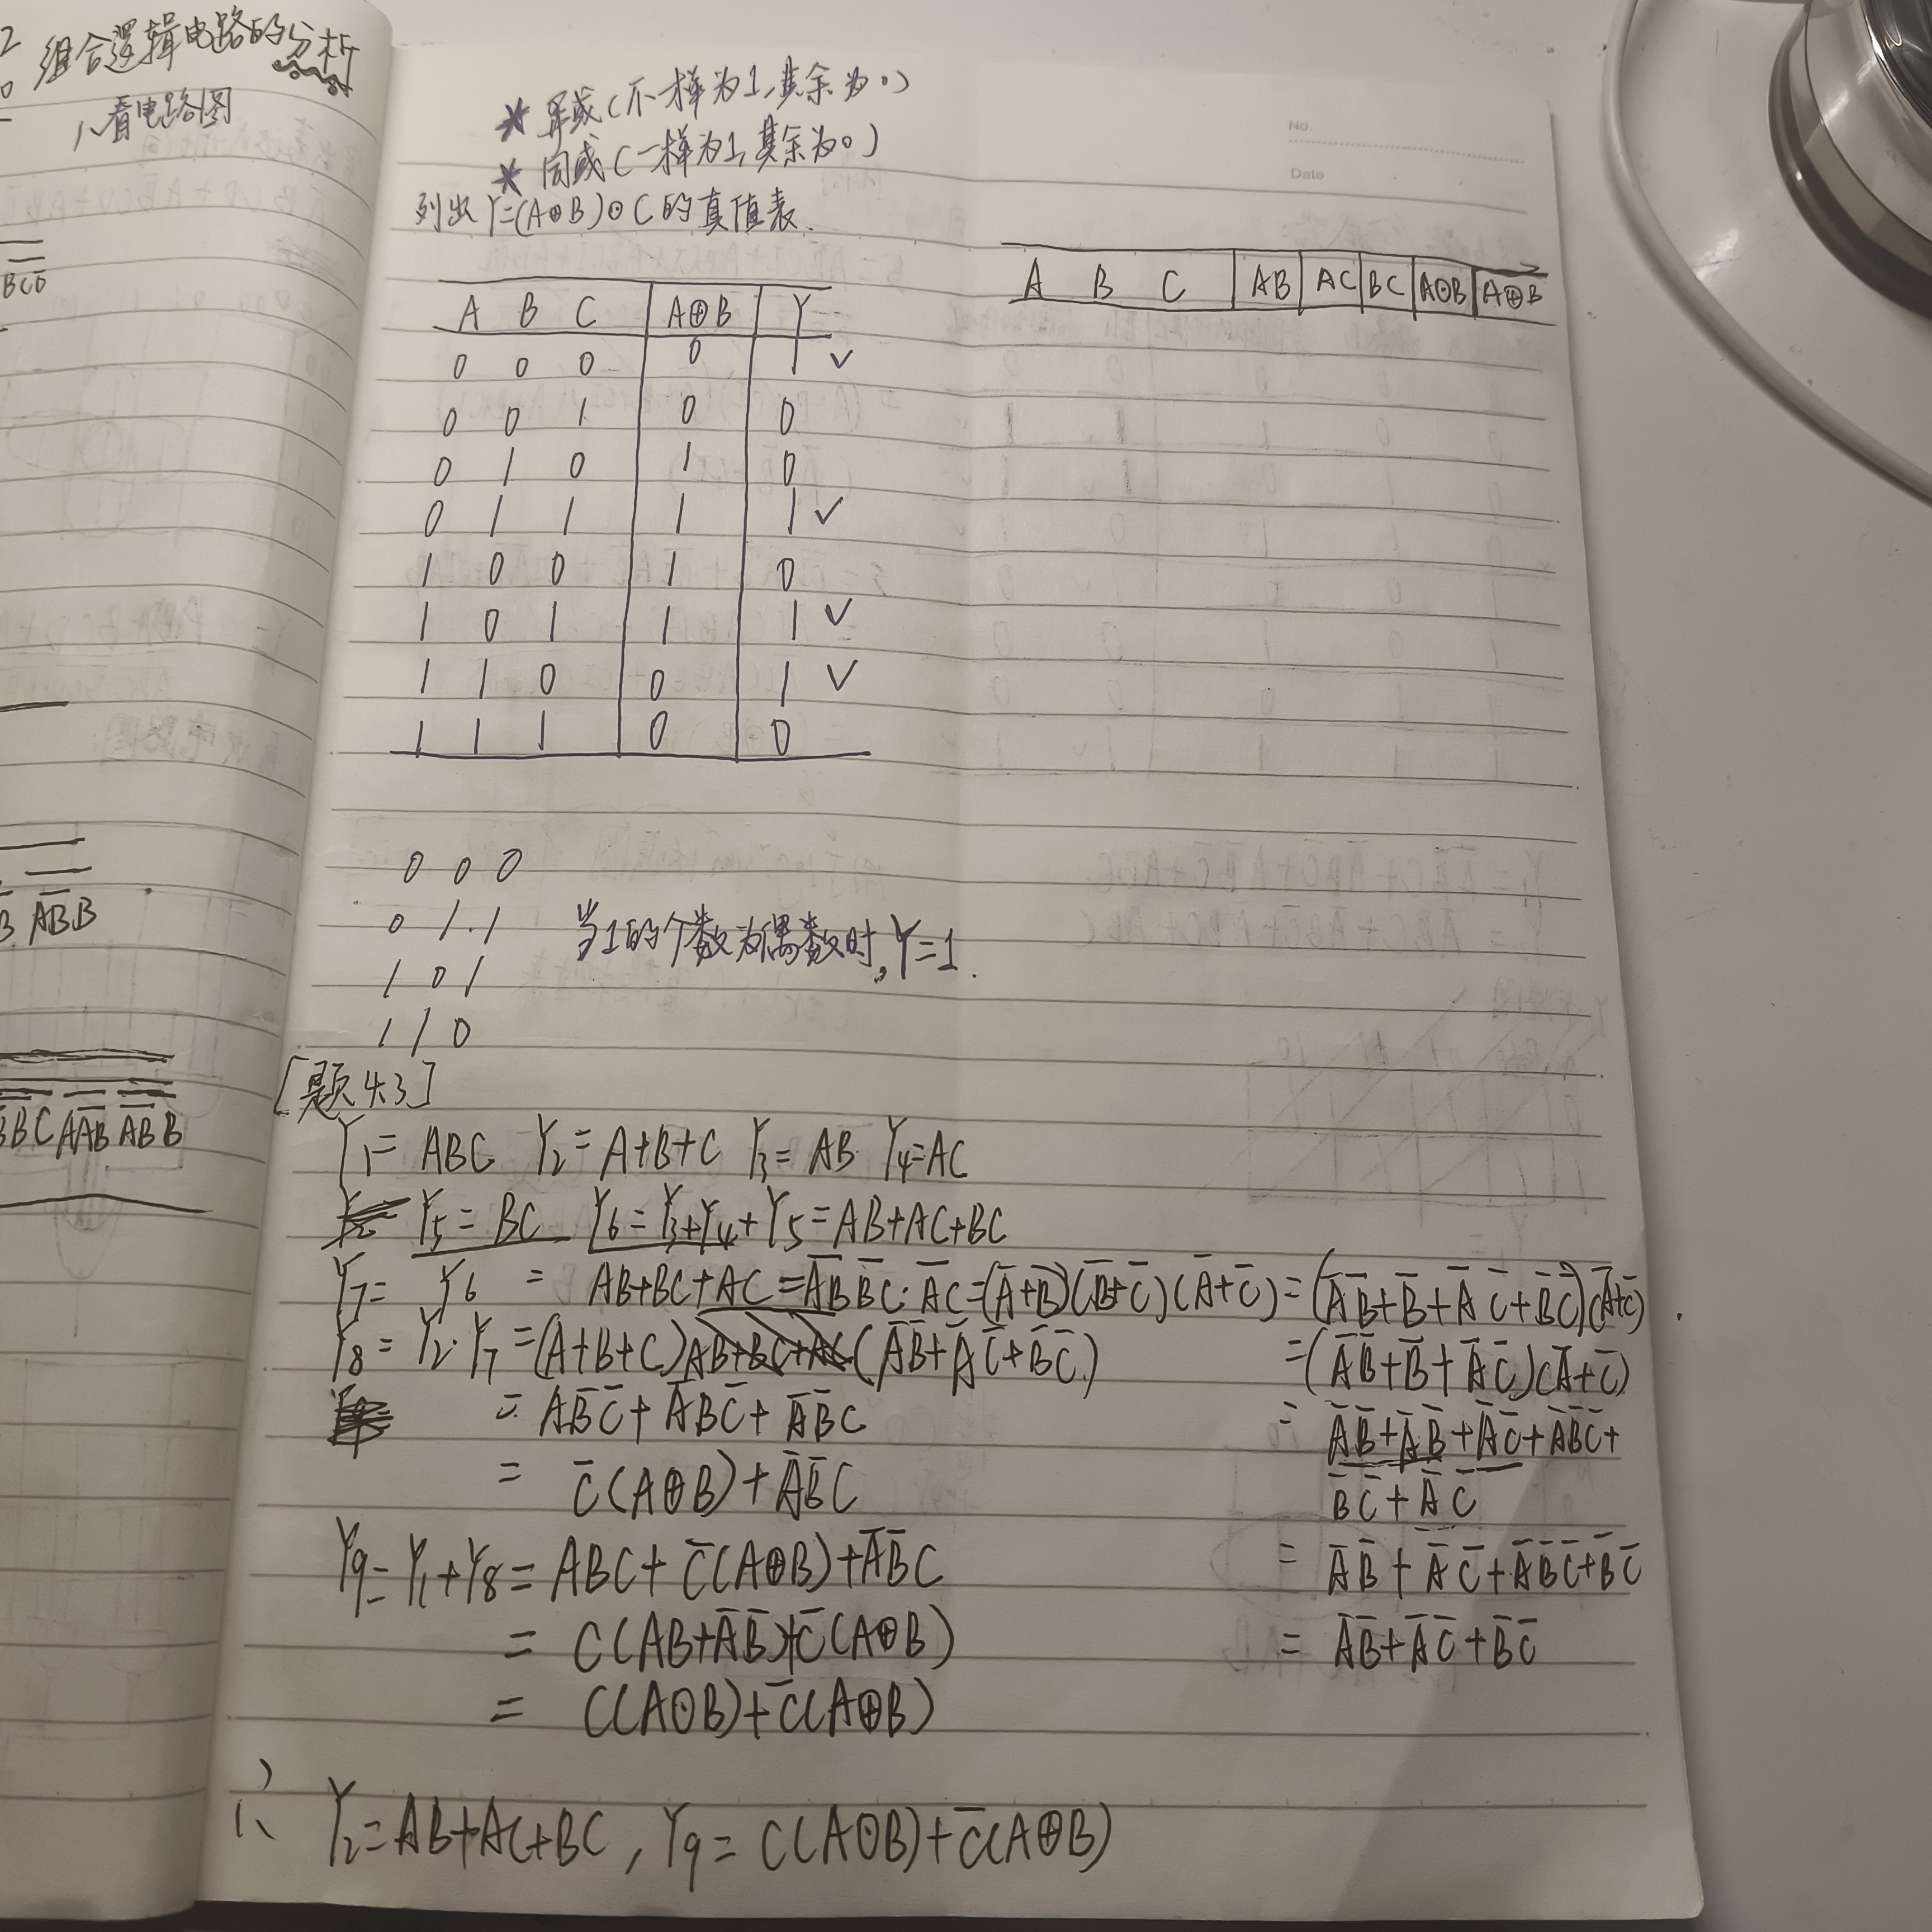 组合逻辑电路的分析
1、看电路图
BCD
ABB
BBC AAB ABB
* 异或(不一样为1,其余为0)
* 同或(一样为1,其余为0)
列出Y=(A⊕B)⊙C的真值表.
A B C A⊕B Y
0 0 0 0 1 ✓
0 0 1 0 0
0 1 0 1 0
0 1 1 1 1 ✓
1 0 0 1 0
1 0 1 1 1 ✓
1 1 0 0 1 ✓
1 1 1 0 0
No.
Date
A B C AB AC BC A⊙B A⊕B
0 0 0
0 1 1
1 0 1
1 1 0
当1的个数为偶数时,Y=1.
[题4.3]
Y₁= ABC Y₂= A+B+C Y₃= AB Y₄=AC
Y₅= BC Y₆=Y₃+Y₄+Y₅=AB+AC+BC
Y₇= Y̅₆ = A̅B̅+̅B̅C̅+̅A̅C̅ =A̅B̅ B̅C̅·A̅C̅=(A̅+B̅)(B̅+C̅)(A̅+C̅)=(A̅B̅+B̅+A̅C̅+B̅C̅)(A̅+C̅)
=(A̅B̅+B̅+A̅C̅)(A̅+C̅)
= A̅B̅+A̅B̅+A̅C̅+A̅B̅C̅+
B̅C̅+A̅C̅
= A̅B̅+A̅C̅+A̅B̅C̅+B̅C̅
= A̅B̅+A̅C̅+B̅C̅
Y₈= Y₂·Y₇=(A+B+C)(A̅B̅+A̅C̅+B̅C̅)
= AB̅C̅+A̅BC̅+A̅B̅C
= C̅(A⊕B)+A̅B̅C
Y₉=Y₁+Y₈=ABC+C̅(A⊕B)+A̅B̅C
= C(AB+A̅B̅)+C̅(A⊕B)
= C(A⊙B)+C̅(A⊕B)
∴ Y₂=AB+AC+BC,Y₉= C(A⊙B)+C̅(A⊕B)